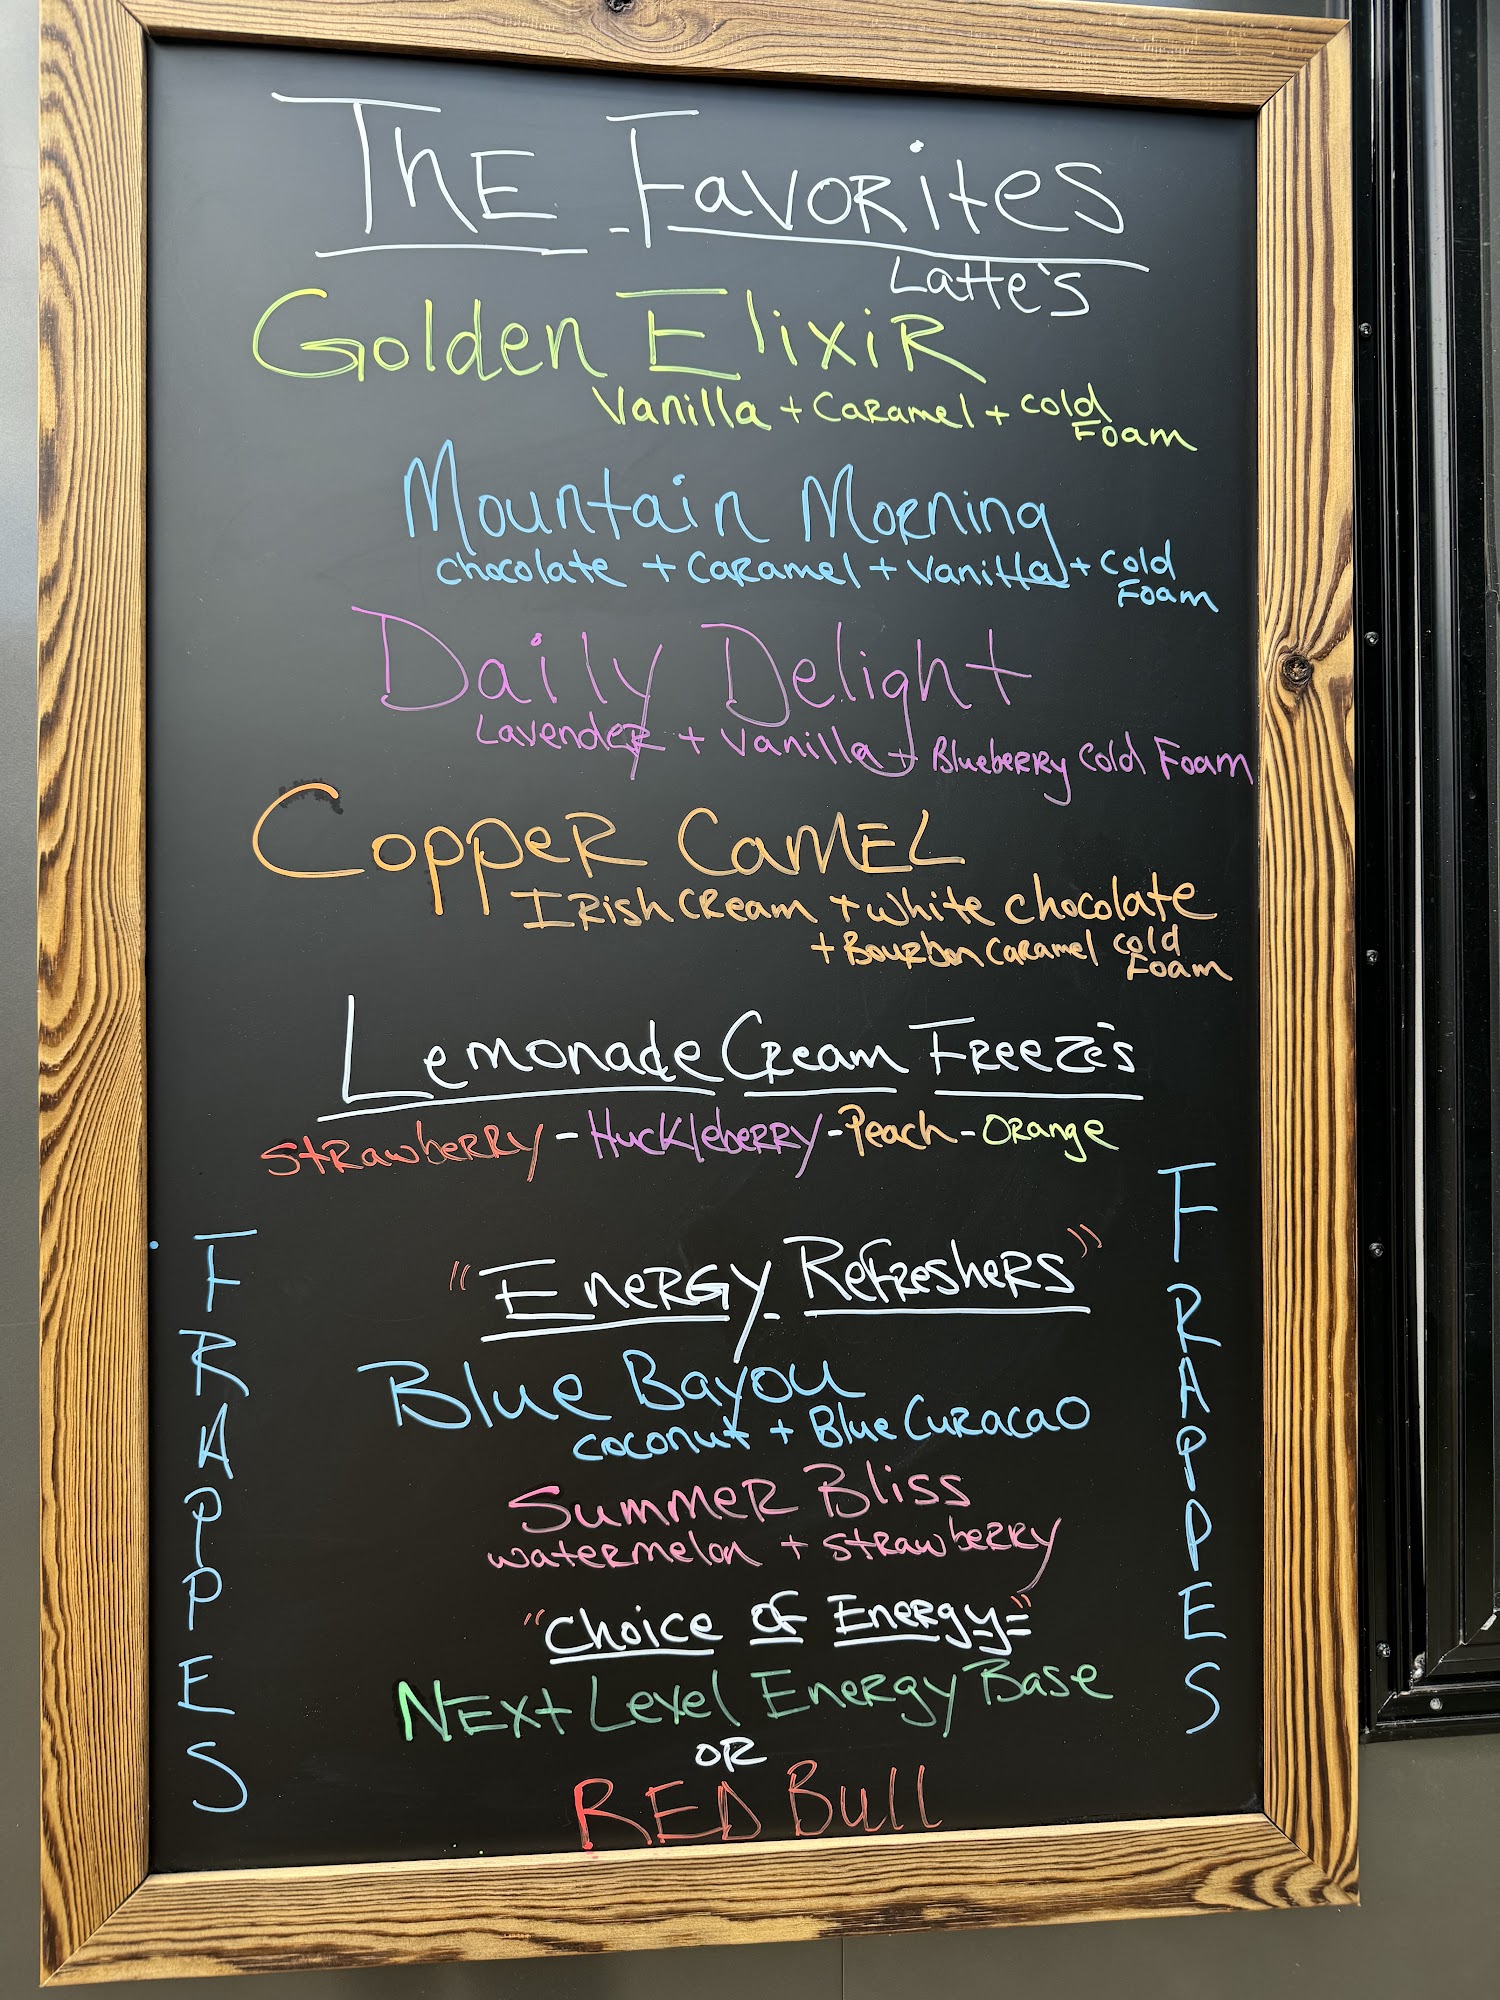 The Favorites
Latte's
Golden Elixir
Vanilla + Caramel + Cold
Foam
Mountain Morning
chocolate + Caramel + Vanilla + Cold
Foam
Daily Delight
Lavender + Vanilla + Blueberry Cold Foam
Copper Camel
Irish Cream + White chocolate
+ Bourbon Caramel Cold
Foam
Lemonade Cream Freeze's
Strawberry - Huckleberry - Peach - Orange
FRAPPES
FRAPPES
"Energy Refreshers"
Blue Bayou
coconut + Blue Curacao
Summer Bliss
watermelon + Strawberry
"Choice of Energy"
Next Level Energy Base
OR
RED Bull